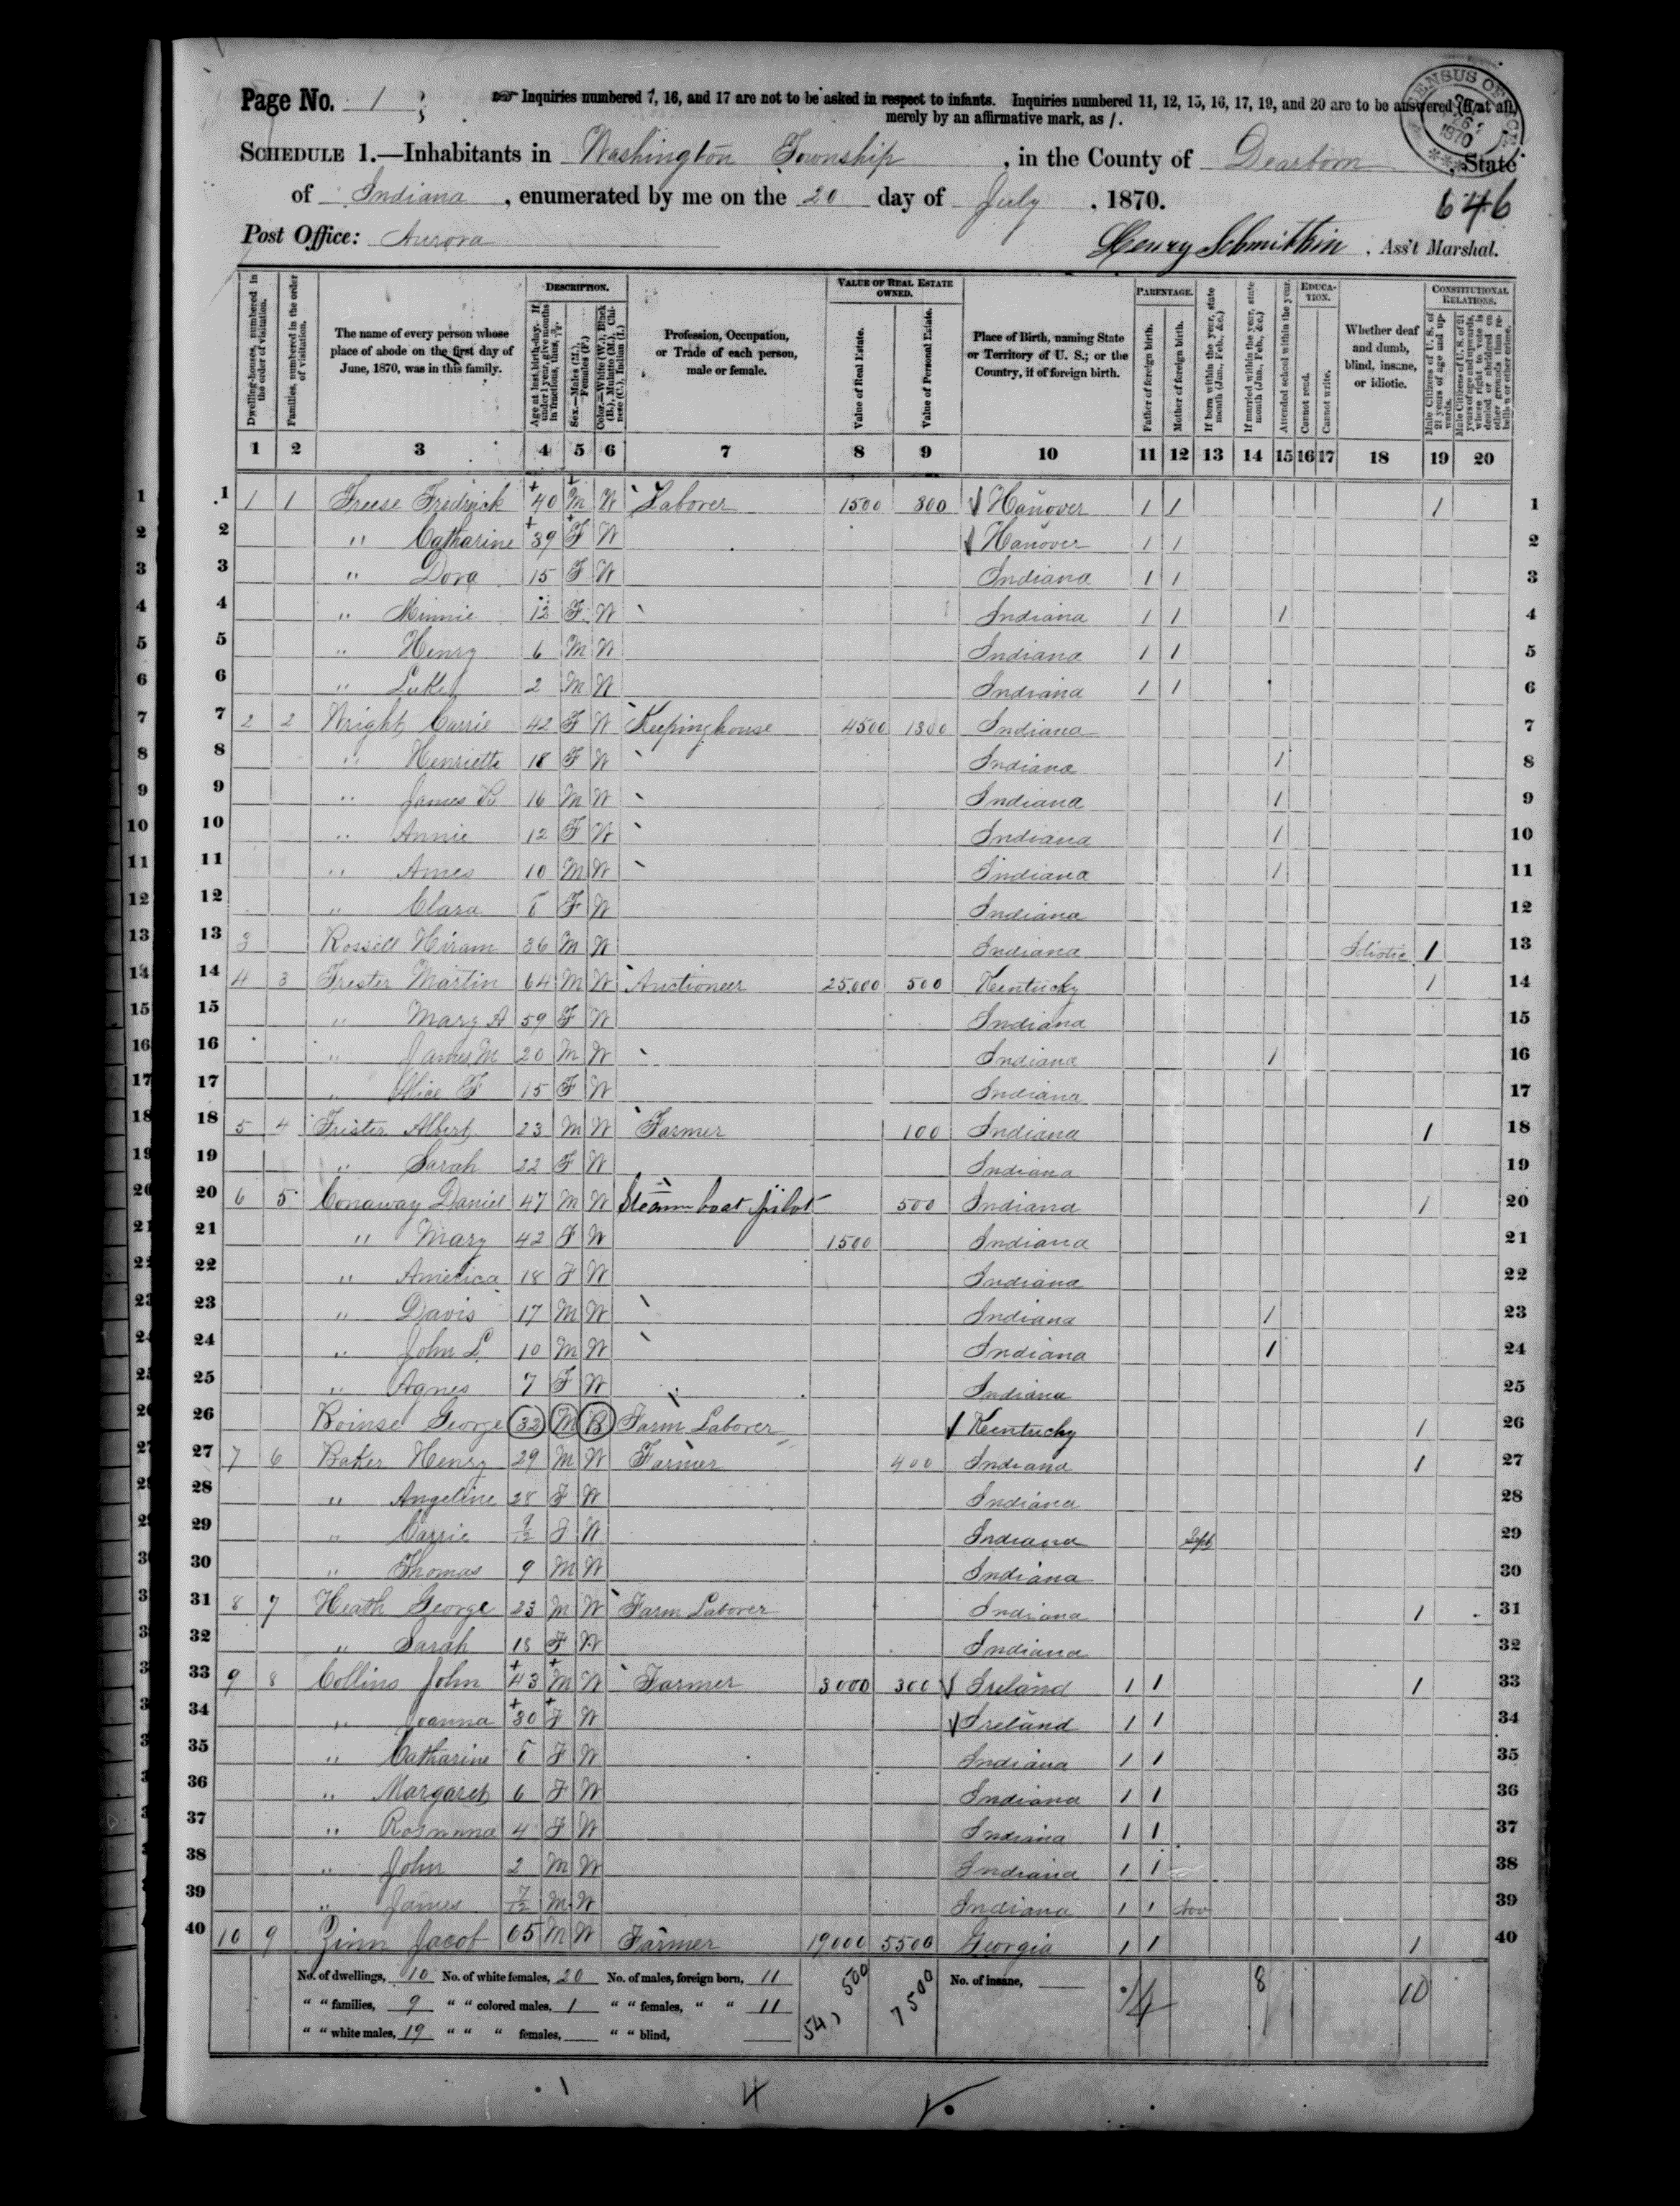 Page No. 1
Inquiries numbered 7, 16, and 17 are not to be asked in respect to infants. Inquiries numbered 11, 12, 15, 16, 17, 19, and 20 are to be answered (if at all)
merely by an affirmative mark, as /.
SCHEDULE 1.—Inhabitants in Washington Township, in the County of Dearborn, State
of Indiana, enumerated by me on the 20 day of July, 1870.
646
Post Office: Aurora
Henry, Ass't Marshal.
Dwelling-houses, numbered in the order of visitation.
Families, numbered in the order of visitation.
The name of every person whose place of abode on the first day of June, 1870, was in this family.
DESCRIPTION.
Age at last birth-day. If under 1 year, give months in fractions, thus,
Sex.—Males (M.), Females (F.)
Color.—White (W.), Black (B.), Mulatto (M.), Chinese (C.), Indian (I.)
Profession, Occupation, or Trade of each person, male or female.
VALUE OF REAL ESTATE OWNED.
Value of Real Estate.
Value of Personal Estate.
Place of Birth, naming State or Territory of U. S.; or the Country, if of foreign birth.
PARENTAGE.
Father of foreign birth.
Mother of foreign birth.
If born within the year, state month (Jan., Feb., &c.)
If married within the year, state month (Jan., Feb., &c.)
Attended school within the year.
EDUCATION.
Cannot read.
Cannot write.
Whether deaf and dumb, blind, insane, or idiotic.
CONSTITUTIONAL RELATIONS.
Male Citizens of U. S. of 21 years of age and upwards.
Male Citizens of U. S. of 21 years of age and upwards, whose right to vote is denied or abridged on other grounds than rebellion or other crime.
1 2 3 4 5 6 7 8 9 10 11 12 13 14 15 16 17 18 19 20
1 1 1 Freese Fredrick 40 M W Laborer 1500 300 Hanover 1 1 1 1
2 " Catharine 39 F W Hanover 1 1 2
3 " Dora 15 F W Indiana 1 1 3
4 " Minnie 12 F W Indiana 1 1 1 4
5 " Henry 6 M W Indiana 1 1 5
6 " Luke 2 M W Indiana 1 1 6
7 2 2 Wright Carrie 42 F W Keeping house 4500 1300 Indiana 7
8 " Henriette 18 F W Indiana 1 8
9 " James 16 M W Indiana 1 9
10 " Annie 12 F W Indiana 1 10
11 " Ames 10 M W Indiana 1 11
12 " Clara F W Indiana 12
13 3 Rossell Hiram 36 M W Indiana Idiotic 1 13
14 4 3 Frester Martin 64 M W Auctioneer 25,000 500 Kentucky 1 14
15 " Mary A 59 F W Indiana 15
16 " James M 20 M W Indiana 1 16
17 " Alice F 15 F W Indiana 17
18 5 4 Frister Albert 23 M W Farmer 100 Indiana 1 18
19 " Sarah 22 F W Indiana 19
20 6 5 Conaway Daniel 47 M W Steam boat pilot 500 Indiana 1 20
21 " Mary 42 F W 1500 Indiana 21
22 " America 18 F W Indiana 22
23 " Davis 17 M W Indiana 1 23
24 " John L 10 M W Indiana 1 24
25 " Agnes 7 F W Indiana 25
26 George 32 M B Farm Laborer Kentucky 1 26
27 7 6 Baker Henry 29 M W Farmer 400 Indiana 1 27
28 " Angeline 28 F W Indiana 28
29 " Carrie 9/12 F W Indiana Sept 29
30 " Thomas 9 M W Indiana 30
31 8 7 Heath George 23 M W Farm Laborer Indiana 1 31
32 " Sarah 18 F W Indiana 32
33 9 8 Collins John 43 M W Farmer 3000 300 Ireland 1 1 1 33
34 " Joanna 30 F W Ireland 1 1 34
35 " Catharine F W Indiana 1 1 35
36 " Margaret 6 F W Indiana 1 1 36
37 " Rosanna 4 F W Indiana 1 1 37
38 " John 2 M W Indiana 1 1 38
39 " James 7/12 M W Indiana 1 1 Nov 39
40 10 9 Zinn Jacob 65 M W Farmer 19000 5500 Georgia 1 1 1 40
No. of dwellings, 10 No. of white females, 20 No. of males, foreign born, 11
" " families, 9 " " colored males, 1 " " females, " " 11
" " white males, 19 " " " females, " " blind,
54, 500
7500
No. of insane,
8
10